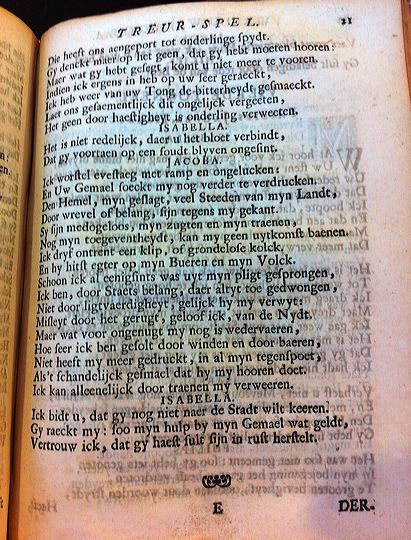 TREUR-SPEL. 21
Die heeft ons aengeport tot onderlinge spydt.
Gy denckt maer op het geen, dat gy hebt moeten hooren:
Maer wat gy hebt gesegt, komt u niet meer te vooren.
Indien ick ergens in heb op uw seer geraeckt,
Ick heb weer van uw Tong de bitterheydt gesmaeckt.
Laet ons gesaementlijck dit ongelijck vergeeten,
Het geen door haestigheyt is onderling verweeten.
ISABELLA.
Het is niet redelijck, daer u het bloet verbindt,
Dat gy voortaen op een soudt blyven ongesint.
JACOBA.
Ick worstel evestaeg met ramp en ongelucken:
En Uw Gemael soeckt my nog verder te verdrucken.
Den Hemel, myn geslagt, veel Steeden van myn Landt,
Door wrevel of belang, sijn tegens my gekant.
Sy sijn medogeloos, myn zugten en myn traenen,
Nog myn toegeventheydt, kan my geen uytkomst baenen.
Ick dryf ontrent een klip, of grondelose kolck.
En hy hitst egter op myn Bueren en myn Volck.
Schoon ick al eenigsints was uyt myn pligt gesprongen,
Ick ben, door Staets belang, daer altyt toe gedwongen,
Niet door ligtvaerdigheyt; gelijck hy my verwyt:
Misleyt door het gerugt, geloof ick, van de Nydt.
Maer wat voor ongenugt my nog is wedervaeren,
Hoe seer ick ben gesolt door winden en door baeren,
Niet heeft my meer gedruckt, in al myn tegenspoet,
Als't schandelijck gesmael dat hy my hooren doet.
Ick kan alleenelijck door traenen my verweeren.
ISABELLA.
Ick bidt u, dat gy nog niet naer de Stadt wilt keeren.
Gy raeckt my: soo myn hulp by myn Gemael wat geldt,
Vertrouw ick, dat gy haest sult sijn in rust herstelt.
E DER-